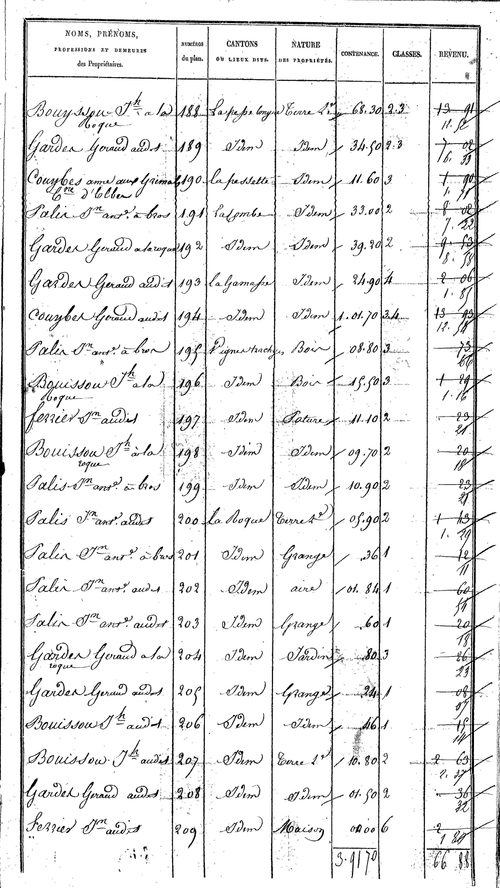 NOMS, PRÉNOMS, PROFESSIONS ET DEMEURES des Propriétaires. NUMÉROS du plan. CANTONS OU LIEUX DITS. NATURE DES PROPRIÉTÉS. CONTENANCE. CLASSES. REVENU.
Bouysson Jh à la 188 Terre Lle 68.30 2.3 13 91
Roque 11.52
Gardes Geraud audt 189 Idem Idem 34.50 2.3 7 02
6.33
Couybes 190 la pessette Idem 11.60 3 1 90
Palis Jn ant. à bros 191 Lacombe Idem 33.00 2 8 02
7.22
Gardes Geraud a la roque 192 Idem Idem 39.20 2 9 53
8.58
Gardes Geraud audt 193 la Gamasse Idem 24.90 4 2 06
1.85
Couybes Geraud audt 194 Idem Idem 1.01.70 3.4 13 93
12.58
Palis Jn ant. à bros 195 Bois 08.80 3 73
66
Bouisson Jh à la 196 Idem Bois 15.50 3 1 29
roque 1.16
ferrier Jn audt 197 Idem Pature 11.10 2 23
21
Bouisson Jh à la 198 Idem Idem 09.70 2 20
roque 18
Palis Jn ant. à bros 199 Idem Idem 10.90 2 23
21
Palis Jn ant. audt 200 la Roque Terre Lle 05.90 2 1 43
1.29
Palis Jn ant. à bros 201 Idem Grange .36 1 12
11
Palis Jn ant. audt 202 Idem aire 01.84 1 60
54
Palis Jn ant. audt 203 Idem Grange .60 1 20
18
Gardes Geraud a la 204 Idem Jardin .80 3 26
roque 23
Gardes Geraud audt 205 Idem Grange .24 1 08
07
Bouisson Jh audt 206 Idem Idem .46 1 15
14
Bouisson Jh audt 207 Idem Terre Lle 10.80 2 2 63
2.37
Gardes Geraud audt 208 Idem Idem 01.50 2 36
32
ferrier Jn audt 209 Idem Maison 00.00 6 2
1 80
3.91 70 66 88